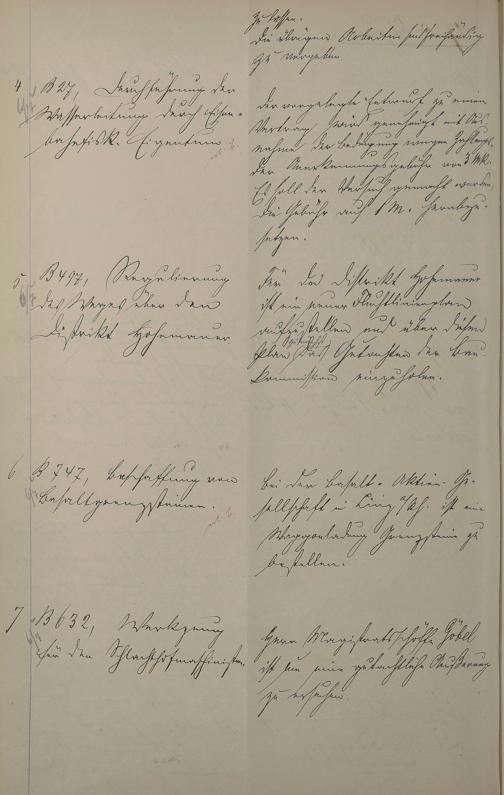 zu lassen.
Die übrigen Arbeiten sind freihändig
zu vergeben.
4 B 27, Durchführung der
Wasserleitung durch Eisen-
bahnfisk. Eigentum.
Der vorgelegte Entwurf zu einem
Vertrag wird genehmigt mit Aus-
nahme der Bedingung wegen Zahlung
der Anerkennungsgebühr von 3 Mk.
Es soll der Versuch gemacht werden
die Gebühr auf 1 M. herabzu-
setzen.
5 B 497, Regulierung
des Weges über den
Distrikt Hohemauer
Für das Distrikt Hohemauer
ist ein neuer Fluchtlinienplan
aufzustellen und über diesen
Plan das Gutachten der Bau-
kommission einzuholen.
6 B 747, Beschaffung von
Basaltgrenzsteinen.
Bei der Basalt-Aktien-Ge-
sellschaft in Linz a/Rh. ist eine
Waggonladung Grenzsteine zu
bestellen.
7 B 632, Werkzeug
für den Schlachthofmaschinisten.
Herr Magistratsschöffe Göbel
ist um eine gutachtliche Äußerung
zu ersuchen.